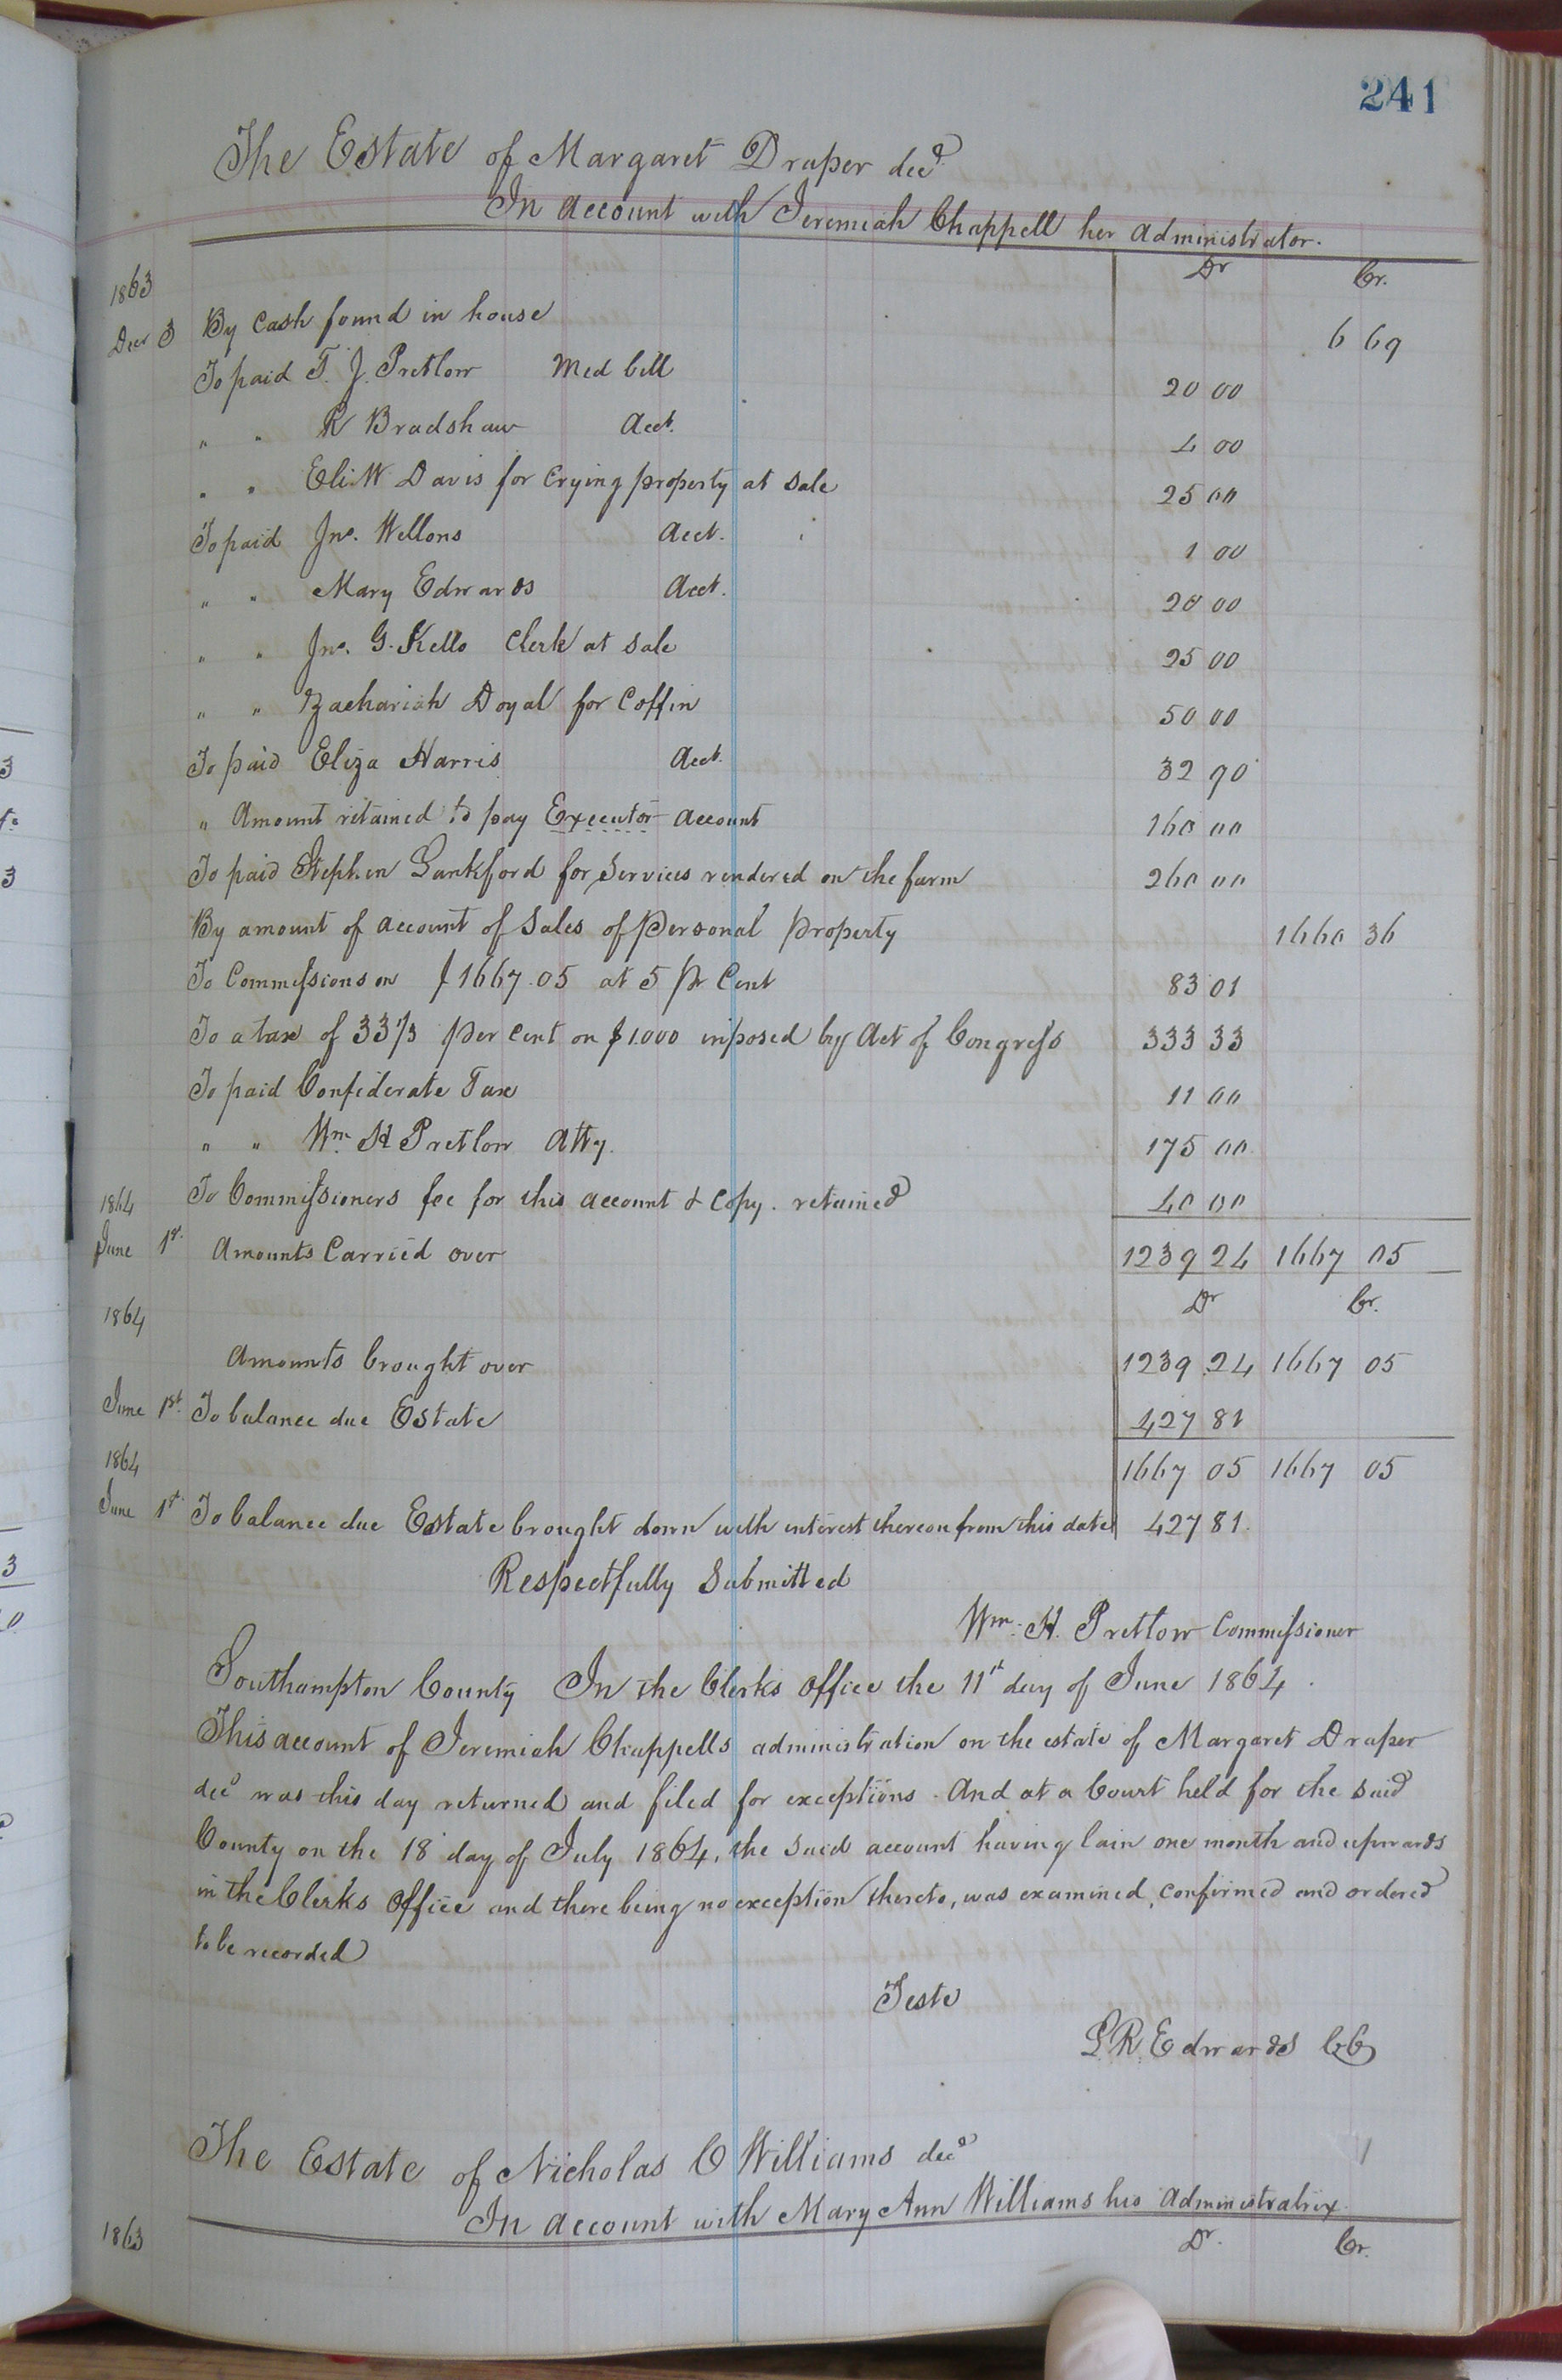 241
The Estate of Margaret Draper decd
In account with Jeremiah Chappell her administrator.
1863 Dr Cr.
Decr 3 By Cash found in house 6 69
To paid T. J. Pretlow Med bill 20 00
" " R Bradshaw Acct. 4 00
" " Eli W Davis for crying property at sale 25 00
To paid Jno. Wellons Acct. 1 00
" " Mary Edwards Acct. 20 00
" " Jno. G. Kello Clerk at sale 25 00
" " Zachariah Doyal for Coffin 50 00
To paid Eliza Harris Acct. 32 90
" Amount retained to pay Executor account 160 00
To paid Stephen Lankford for services rendered on the farm 260 00
By amount of account of Sales of Personal property 1660 36
To Commissions on $1667.05 at 5 pr Cent 83 01
To a tax of 33 1/3 per cent on $1.000 imposed by Act of Congress 333 33
To paid Confederate Tax 11 00
" " Wm. H Pretlow Atty. 175 00
1864 To Commissioners fee for this account & copy. retained 40 00
June 1st. Amounts Carried over 1239 24 1667 05
1864 Dr Cr.
Amounts brought over 1239 24 1667 05
June 1st. To balance due Estate 427 81
1864 1667 05 1667 05
June 1st. To balance due Estate brought down with interest thereon from this date 427 81.
Respectfully Submitted
Wm. H. Pretlow Commissioner
Southampton County In the Clerks office the 11th day of June 1864.
This account of Jeremiah Chappells administration on the estate of Margaret Draper
decd was this day returned and filed for exceptions. And at a Court held for the said
County on the 18 day of July 1864, the said account having lain one month and upwards
in the Clerks office and there being no exception thereto, was examined, confirmed and ordered
to be recorded
Teste
L. R. Edwards CC
The Estate of Nicholas C Williams decd
In account with Mary Ann Williams his administratrix.
1863 Dr. Cr.